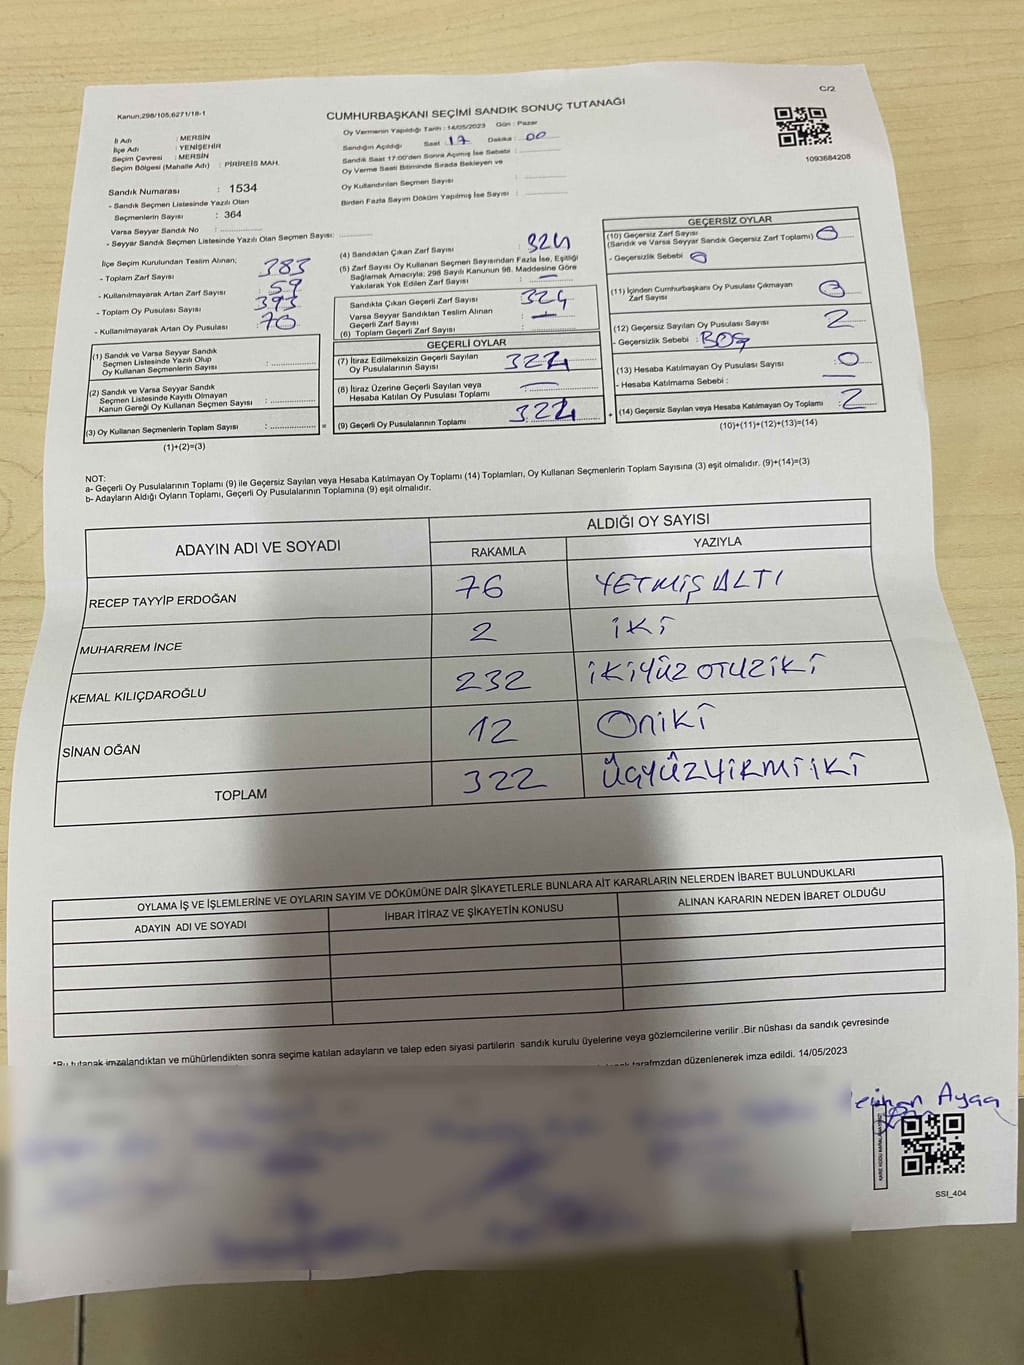 C/2
Kanun;298/105,6271/18-1
CUMHURBAŞKANI SEÇİMİ SANDIK SONUÇ TUTANAĞI
İl Adı : MERSİN
İlçe Adı : YENİŞEHİR
Seçim Çevresi : MERSİN
Seçim Bölgesi (Mahalle Adı) : PİRİREİS MAH.
Oy Vermenin Yapıldığı Tarih : 14/05/2023 Gün : Pazar
Sandığın Açıldığı Saat : 17 Dakika : 00
Sandık Saat 17:00'den Sonra Açılmış İse Sebebi :
Oy Verme Saati Bitiminde Sırada Bekleyen ve
Oy Kullandırılan Seçmen Sayısı :
Birden Fazla Sayım Döküm Yapılmış İse Sayısı :
1093684208
Sandık Numarası : 1534
- Sandık Seçmen Listesinde Yazılı Olan
Seçmenlerin Sayısı : 364
Varsa Seyyar Sandık No :
- Seyyar Sandık Seçmen Listesinde Yazılı Olan Seçmen Sayısı:
İlçe Seçim Kurulundan Teslim Alınan;
- Toplam Zarf Sayısı : 383
- Kullanılmayarak Artan Zarf Sayısı : 59
- Toplam Oy Pusulası Sayısı : 393
- Kullanılmayarak Artan Oy Pusulası : 70
(1) Sandık ve Varsa Seyyar Sandık
Seçmen Listesinde Yazılı Olup
Oy Kullanan Seçmenlerin Sayısı :
(2) Sandık ve Varsa Seyyar Sandık
Seçmen Listesinde Kayıtlı Olmayan
Kanun Gereği Oy Kullanan Seçmen Sayısı :
(3) Oy Kullanan Seçmenlerin Toplam Sayısı : =
(1)+(2)=(3)
(4) Sandıktan Çıkan Zarf Sayısı : 324
(5) Zarf Sayısı Oy Kullanan Seçmen Sayısından Fazla İse, Eşitliği
Sağlamak Amacıyla; 298 Sayılı Kanunun 98. Maddesine Göre
Yakılarak Yok Edilen Zarf Sayısı : —
Sandıkta Çıkan Geçerli Zarf Sayısı : 324
Varsa Seyyar Sandıktan Teslim Alınan
Geçerli Zarf Sayısı : —
(6) Toplam Geçerli Zarf Sayısı :
GEÇERLİ OYLAR
(7) İtiraz Edilmeksizin Geçerli Sayılan
Oy Pusulalarının Sayısı :
(8) İtiraz Üzerine Geçerli Sayılan veya
Hesaba Katılan Oy Pusulası Toplamı : —
(9) Geçerli Oy Pusulalarının Toplamı : +
GEÇERSİZ OYLAR
(10) Geçersiz Zarf Sayısı
(Sandık ve Varsa Seyyar Sandık Geçersiz Zarf Toplamı) : 0
- Geçersizlik Sebebi : 0
(11) İçinden Cumhurbaşkanı Oy Pusulası Çıkmayan
Zarf Sayısı :
(12) Geçersiz Sayılan Oy Pusulası Sayısı : 2
- Geçersizlik Sebebi : BOŞ
(13) Hesaba Katılmayan Oy Pusulası Sayısı : 0
- Hesaba Katılmama Sebebi : —
(14) Geçersiz Sayılan veya Hesaba Katılmayan Oy Toplamı : 2
(10)+(11)+(12)+(13)=(14)
NOT:
a- Geçerli Oy Pusulalarının Toplamı (9) ile Geçersiz Sayılan veya Hesaba Katılmayan Oy Toplamı (14) Toplamları, Oy Kullanan Seçmenlerin Toplam Sayısına (3) eşit olmalıdır. (9)+(14)=(3)
b- Adayların Aldığı Oyların Toplamı, Geçerli Oy Pusulalarının Toplamına (9) eşit olmalıdır.
ADAYIN ADI VE SOYADI
ALDIĞI OY SAYISI
RAKAMLA YAZIYLA
RECEP TAYYİP ERDOĞAN 76 YETMİŞ ALTI
MUHARREM İNCE 2 İKİ
KEMAL KILIÇDAROĞLU 232 İKİYÜZ OTUZİKİ
SİNAN OĞAN 12 ONİKİ
TOPLAM 322 ÜÇYÜZYİRMİİKİ
OYLAMA İŞ VE İŞLEMLERİNE VE OYLARIN SAYIM VE DÖKÜMÜNE DAİR ŞİKAYETLERLE BUNLARA AİT KARARLARIN NELERDEN İBARET BULUNDUKLARI
ADAYIN ADI VE SOYADI İHBAR İTİRAZ VE ŞİKAYETİN KONUSU ALINAN KARARIN NEDEN İBARET OLDUĞU
*Bu tutanak imzalandıktan ve mühürlendikten sonra seçime katılan adayların ve talep eden siyasi partilerin sandık kurulu üyelerine veya gözlemcilerine verilir .Bir nüshası da sandık çevresinde
tarafmzdan düzenlenerek imza edildi. 14/05/2023
SSI_404